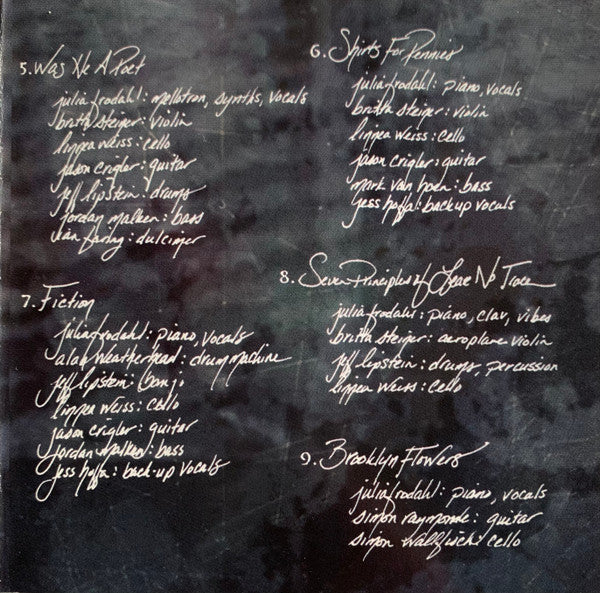 5. Was He A Poet
julia frodahl: mellotron, synths, vocals
britta steiper: violin
linnea weiss: cello
jason crigler: guitar
jeff lipstein: drums
jordan malken: bass
farina: dulcimer
6. Shirts For Pennies
julia frodahl: piano, vocals
britta steiper: violin
linnea weiss: cello
jason crigler: guitar
mark van hoen: bass
jess hoffa: backup vocals
7. Fiction
julia frodahl: piano, vocals
alap weatherhead: drum machine
jeff lipstein: banjo
linnea weiss: cello
jason crigler: guitar
jordan malken: bass
jess hoffa: back-up vocals
8. Seven Principles of Leave No Trace
julia frodahl: piano, clav, vibes
britta steiper: aeroplane violin
jeff lipstein: drums, percussion
linnea weiss: cello
9. Brooklyn Flowers
julia frodahl: piano, vocals
simon raymonde: guitar
simon wallfisch: cello